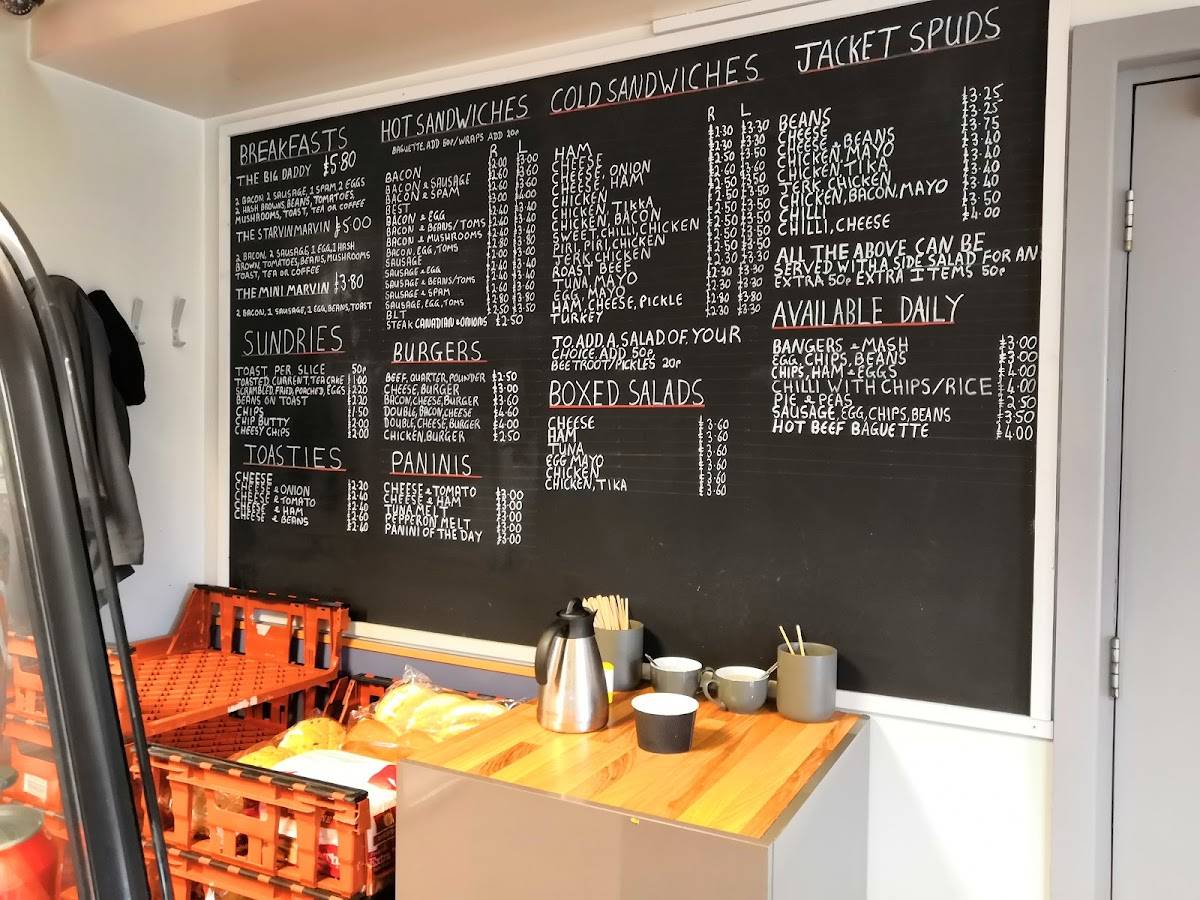 BREAKFASTS
THE BIG DADDY £5.80
2 BACON, 2 SAUSAGE, 1 SPAM, 2 EGGS
2 HASH BROWNS, BEANS, TOMATOES,
MUSHROOMS, TOAST, TEA OR COFFEE
THE STARVIN MARVIN £5.00
2 BACON, 2 SAUSAGE, 1 EGG, 1 HASH
BROWN, TOMATOES, BEANS, MUSHROOMS
TOAST, TEA OR COFFEE
THE MINI MARVIN £3.80
2 BACON, 1 SAUSAGE, 1 EGG, BEANS, TOAST
SUNDRIES
TOAST PER SLICE 50p
TOASTED CURRENT, TEA CAKE £1.00
SCRAMBLED, FRIED, POACHED, EGGS £2.20
BEANS ON TOAST £2.20
CHIPS £1.50
CHIP BUTTY £2.00
CHEESY CHIPS £2.00
TOASTIES
CHEESE £2.20
CHEESE & ONION £2.40
CHEESE & TOMATO £2.40
CHEESE & HAM £2.40
CHEESE & BEANS £2.40
HOT SANDWICHES
BAGUETTE, ADD 50p/WRAPS ADD 20p
R L
BACON £2.00 £3.00
BACON & SAUSAGE
BACON & SPAM
BEST
BACON & EGG
BACON & BEANS/TOMS
BACON & MUSHROOMS
BACON, EGG, TOMS
SAUSAGE
SAUSAGE & EGG
SAUSAGE & BEANS/TOMS
SAUSAGE & SPAM
SAUSAGE, EGG, TOMS
BLT
STEAK CANADIAN & ONIONS £2.50
BURGERS
BEEF, QUARTER, POUNDER £2.50
CHEESE, BURGER £3.00
BACON, CHEESE, BURGER £3.60
DOUBLE, BACON, CHEESE £4.60
DOUBLE, CHEESE, BURGER £4.00
CHICKEN, BURGER £2.50
PANINIS
CHEESE & TOMATO £3.00
CHEESE & HAM £3.00
TUNA MELT £3.00
PEPPERON MELT £3.00
PANINI OF THE DAY £3.00
COLD SANDWICHES
R L
HAM £2.30 £3.30
CHEESE
CHEESE, ONION
CHEESE, HAM
CHICKEN
CHICKEN, TIKKA
CHICKEN, BACON
SWEET, CHILLI, CHICKEN
PIRI, PIRI, CHICKEN
JERK, CHICKEN
ROAST BEEF
TUNA, MAYO
EGG, MAYO
HAM, CHEESE, PICKLE
TURKEY
TO ADD A SALAD OF YOUR
CHOICE ADD 50p,
BEETROOT/PICKLES 20p
BOXED SALADS
CHEESE £3.60
HAM £3.60
TUNA £3.60
EGG MAYO £3.60
CHICKEN £3.60
CHICKEN, TIKA £3.60
JACKET SPUDS
BEANS £3.25
CHEESE £3.25
CHEESE & BEANS £3.75
CHICKEN, MAYO £3.40
CHICKEN, TIKA £3.40
JERK, CHICKEN £3.40
CHICKEN, BACON, MAYO £3.40
CHILLI £3.50
CHILLI, CHEESE £4.00
ALL THE ABOVE CAN BE
SERVED WITH A SIDE SALAD FOR AN
EXTRA 50p EXTRA ITEMS 50p
AVAILABLE DAILY
BANGERS & MASH £3.00
EGG, CHIPS, BEANS £3.00
CHIPS, HAM & EGGS £4.00
CHILLI WITH CHIPS/RICE £4.00
PIE & PEAS £2.50
SAUSAGE, EGG, CHIPS, BEANS £3.50
HOT BEEF BAGUETTE £4.00